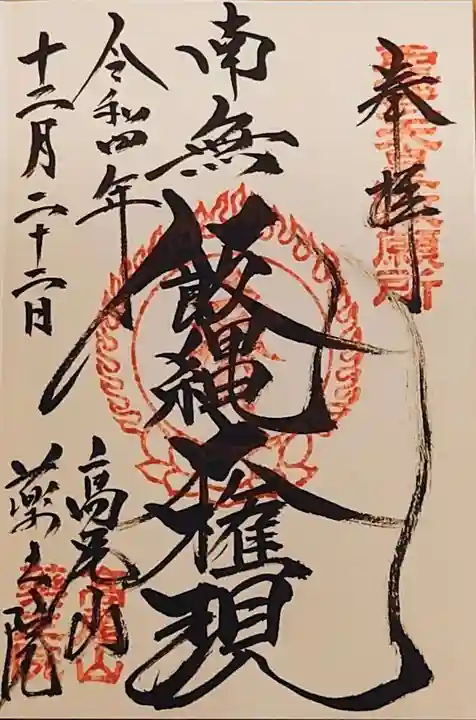 奉拝
南無
飯縄大権現
令和四年
十二月二十二日
高尾山
薬王院
高尾山
薬王院